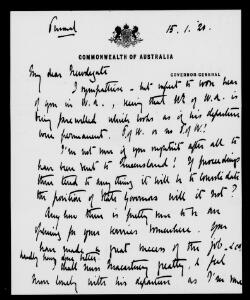 Personal
15.1.'20.
COMMONWEALTH OF AUSTRALIA
GOVERNOR GENERAL
My dear Newdegate
I sympathise – but expect to soon hear
of you in W.A., seeing that of W.A. is
being farewelled which looks as if his departure
were permanent.
I'm not sure if you oughtn't after all to
have been sent to Queensland! If proceedings
there tend to anything it will be to consolidate
the position of State Governors will it not?
Any how there is pretty sure to be an
opening for your services somewhere. You
have made a great success of the job, &
hardly any one better
shall miss Macartney greatly, & feel
more lonely with his departure as I'm now